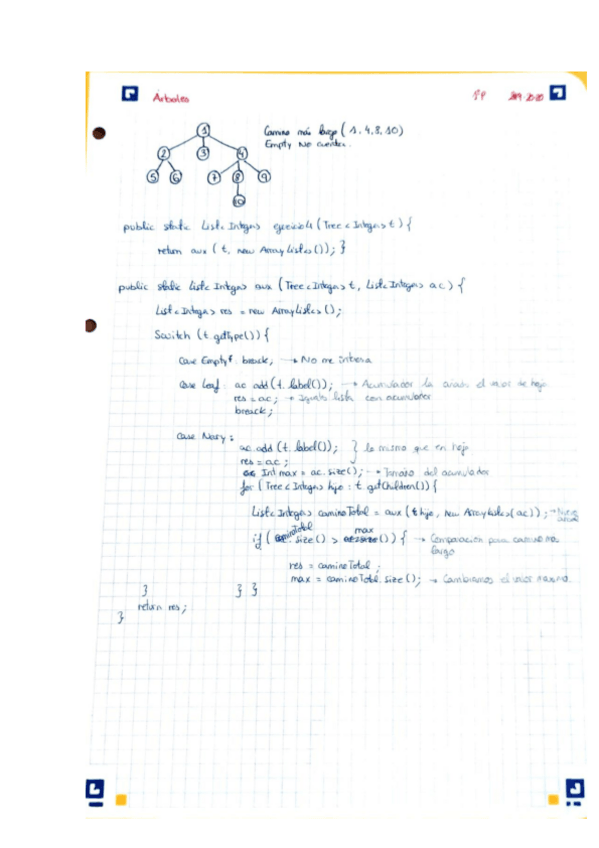 Arboles 1ºP 2019-2020
1 Camino más largo (1,4,8,10)
2 3 4 Empty No cuenta.
5 6 7 8 9
10
public static List<Integer> ejercicio4 (Tree<Integer> t) {
return aux (t, new ArrayList<>()); }
public static List<Integer> aux (Tree<Integer> t, List<Integer> ac) {
List<Integer> res = new ArrayList<>();
Switch (t.getType()) {
case Empty: break; → No me interesa
case Leaf: ac.add(t.label()); → Acumulador la añade el valor de hoja
res = ac; → Iguala lista con acumulador
break;
case Nary:
ac.add(t.label()); } lo mismo que en hoja
res = ac;
Int max = ac.size(); → Tamaño del acumulador
for (Tree<Integer> hijo : t.getChildren()) {
List<Integer> caminoTotal = aux (t hijo, new ArrayList<>(ac)); →
if (caminoTotal.size() > max) { → Comparación para camino más
largo
res = caminoTotal;
max = caminoTotal.size(); → Cambiamos el valor máximo.
} } }
return res;
}